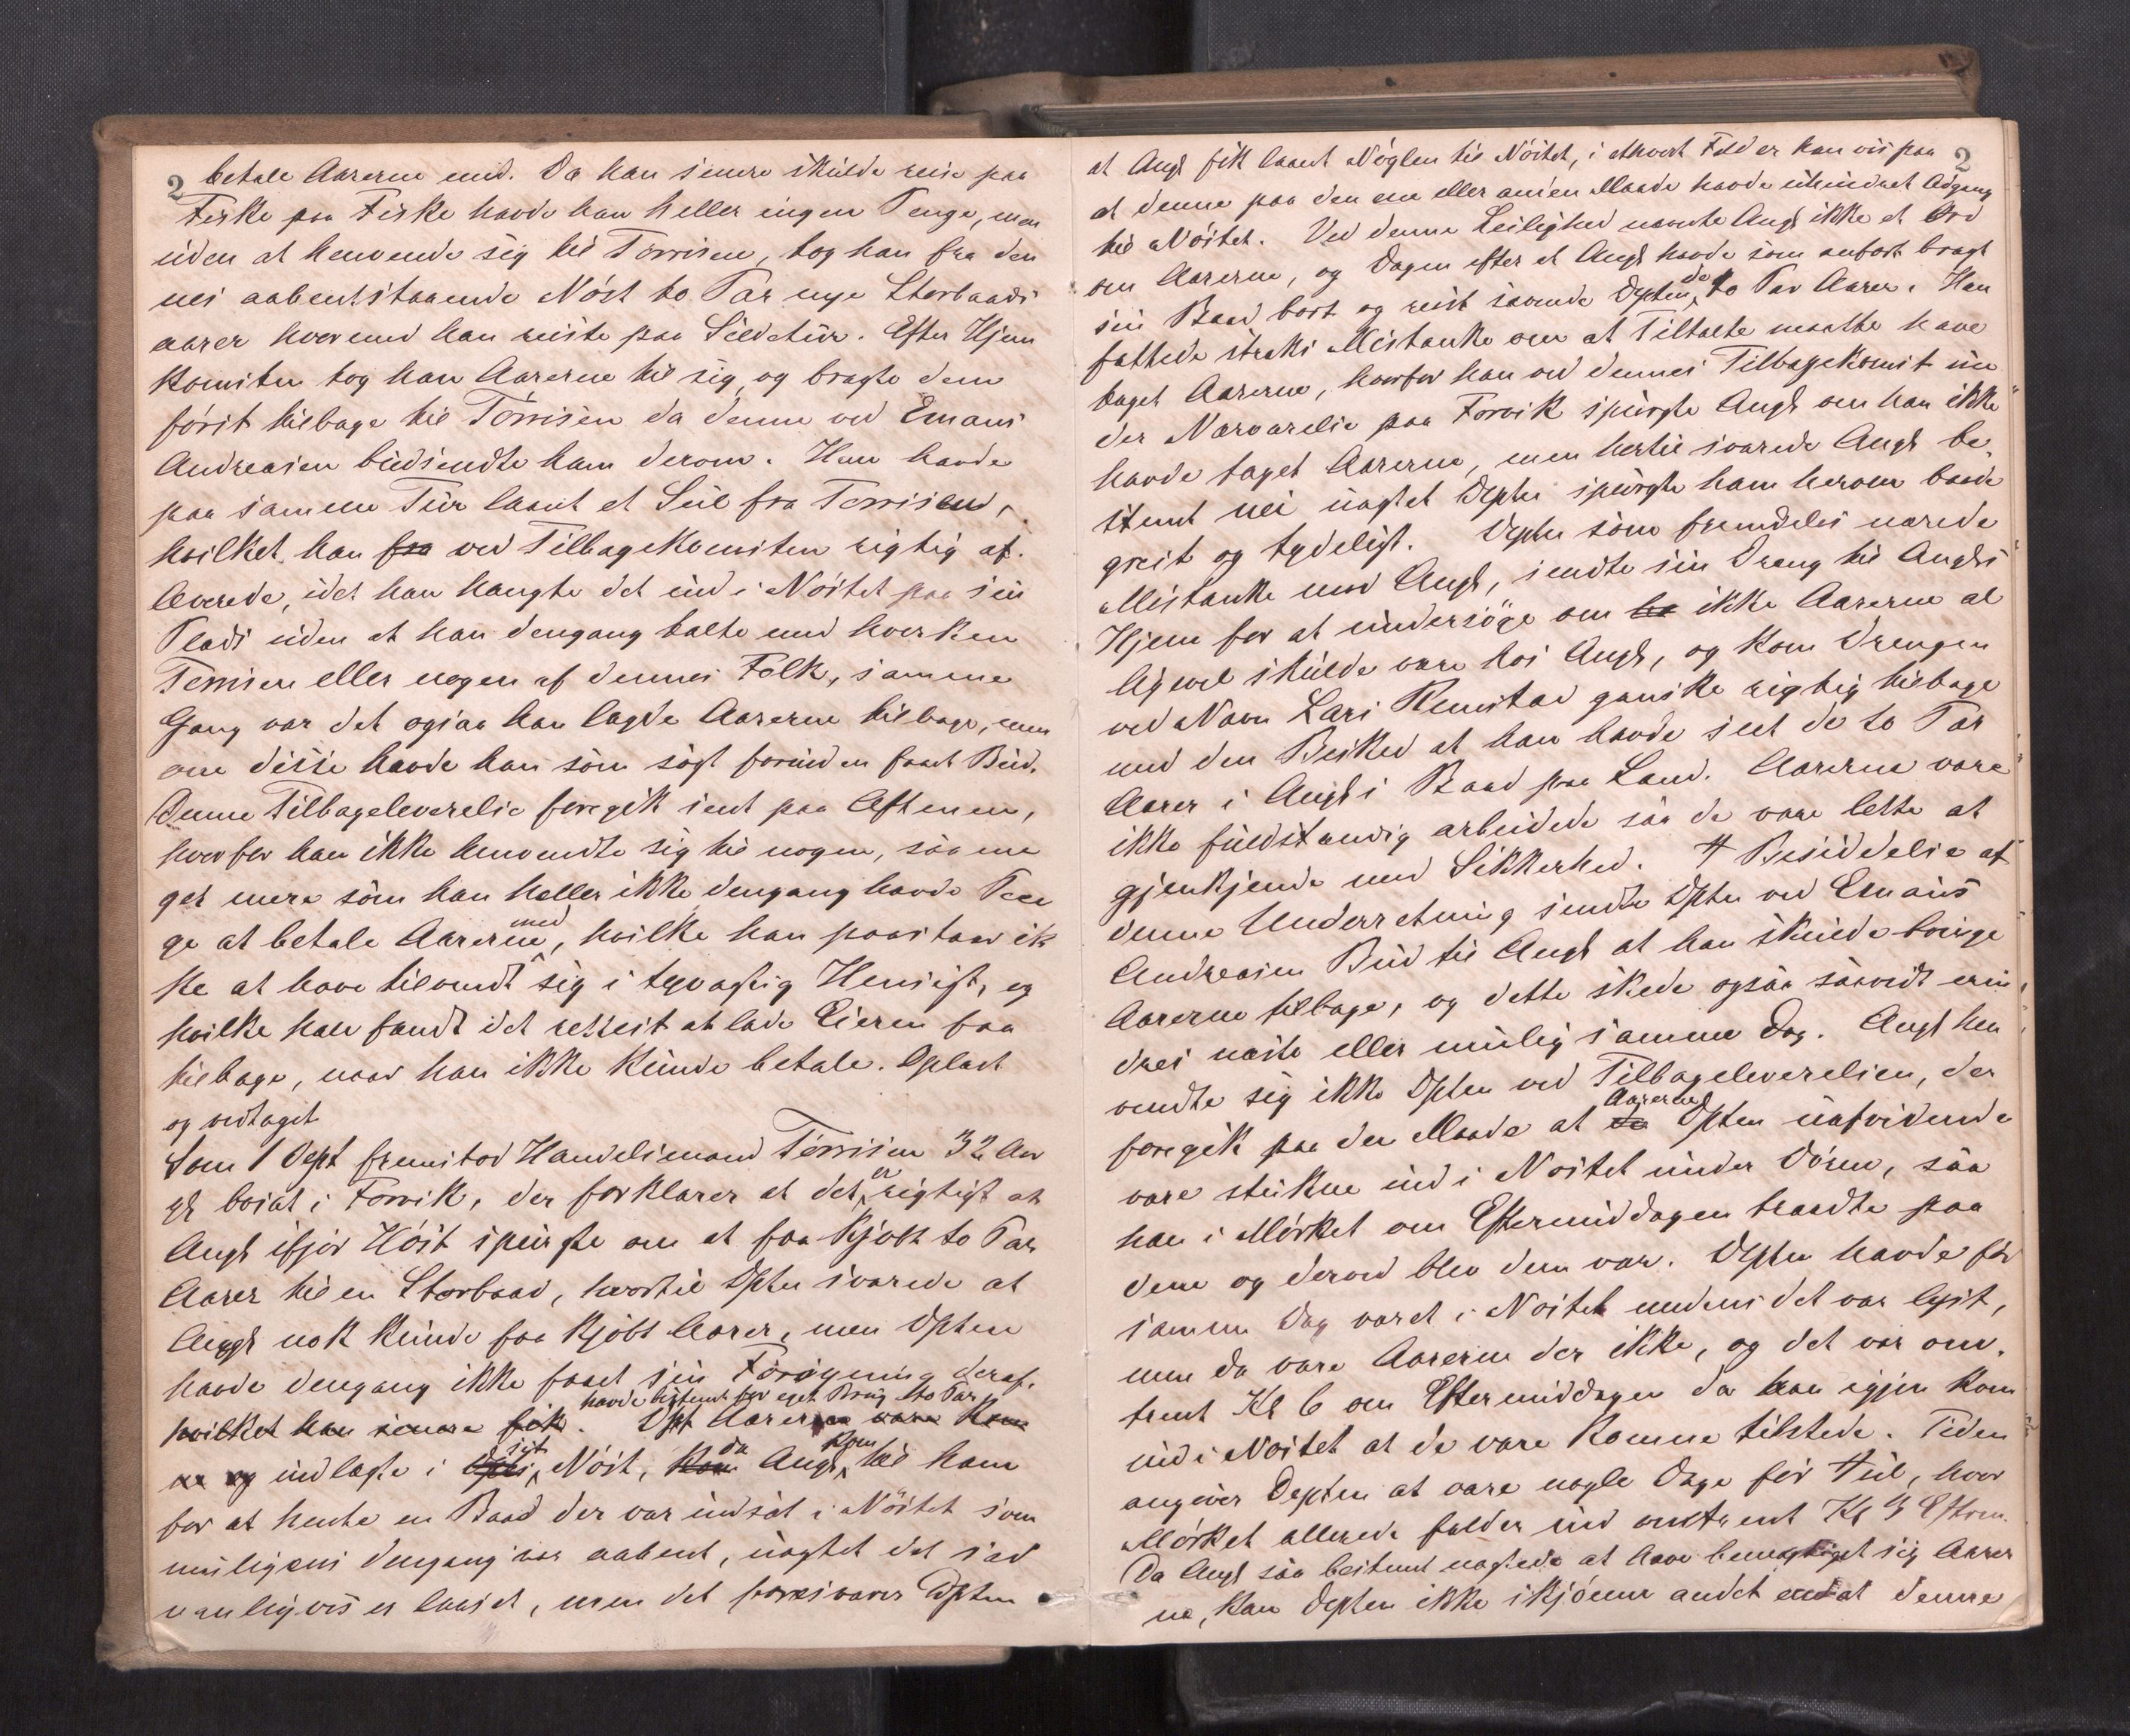 2 betale Aarerne med. Da han senere skulde reise paa
Fiske paa Fiske havde han heller ingen Penge, men
uden at henvende sig til Tørrisen, tog han fra den
nes aabentstaaende Nøst to Par nye Storbaads
aarer hvormed han reiste paa Sildetur. Efter Hjem
komsten tog han Aarerne til sig, og bragte dem
først tilbage til Tørrisen da denne ved Emans
Andreasen budsendte ham derom. Han havde
paa samme Tur laant et Seil fra Tørrisen,
hvilket han fra ved Tilbagekomsten rigtig af-
leverede, idet han hængte det ind i Nøstet paa sin
Plads uden at han dengang talte med hverken
Tørrisen eller nogen af dennes Folk, samme
Gang var det ogsaa han lagde Aarerne tilbage, men
om disse havde han som sagt forinden faaet Bud.
Denne Tilbageleverelse foregik sent paa Aftenen,
hvorfor han ikke henvendte sig til nogen, saa me
get mere som han heller ikke dengang havde Pen
ge at betale Aarerne med, hvilke han paastaar ik
ke at have tilvendt sig i tyvagtig Hensigt, og
hvilke han fandt det rettest at lade Eieren faa
tilbage, naar han ikke kunde betale. Oplæst
og vedtaget
Som 1 Dept fremstod Handelsmand Tørrisen 32 Aar
gl bosat i Forvik, der forklarer at det er rigtigt at
Angh ifjor Høst spurgte om at faa kjøbt to Par
Aarer til en Storbaad, hvortil Dpten svarede at
Angh nok kunde faa kjøbt Aarer, men Dpten
havde dengang ikke faaet sin Forsyning deraf.
havde bestemt for eget Brug to Par
hvilket han senere fik. Dpt Aarerne vare kom
ne og indlagte i Dptens sit Nøst, kom da Angh kom til ham
for at hente en Baad der var indsat i Nøstet som
muligens dengang var aabent, uagtet det sæd
vanligvis er laaset, men det forresvarer Dpten
2
at Angh fik laant Nøglen til Nøstet, i ethvert Fald er han vis paa
at denne paa den ene eller anden Maade havde uhindret Adgang
til Nøstet. Ved denne Leilighed nævnte Angh ikke et Ord
om Aarerne, og Dagen efter at Angh havde som anført bragt
sin Baad bort og reist savnede Depten de to Par Aarer. Han
fattede straks Mistanke om at Tiltalte maatte have
taget Aarerne, hvorfor han ved dennes Tilbagekomst un
der Nærværelse paa Forvik spurgte Angh om han ikke
havde taget Aarerne, men hertil svarede Angh be-
stemt nei uagtet Depten spurgte ham herom baade
greit og tydeligt. Depten som fremdeles nærede
Mistanke mod Angh, sendte sin Dreng til Anghs
Hjem for at undersøge om ha ikke Aarerne al
ligevel skulde være hos Angh, og kom Drengen
ved Navn Lars Remstad ganske rigtig tilbage
med den Besked at han havde seet de to Par
Aarer i Anghs Baad paa Land. Aarerne vare
ikke fuldstændig arbeidede saa de vare lette at
gjenkjende med Sikkerhed. I Besiddelse af
denne Underretning sendte Dpten ved Emans
Andreasen Bud til Angh at han skulde bringe
Aarerne tilbage, og dette skede ogsaa saavidt erin
dres næste eller mulig samme Dag. Angh hen
vendte sig ikke Dpten ved Tilbageleverelsen, der
foregik paa den Maade at de Aarerne Dpten uafvidende
vare stukne ind i Nøstet under Døren, saa
han i Mørket om Eftermiddagen traadte paa
dem og derved blev dem var. Depten havde før
samme Dag været i Nøstet medens det var lyst,
men da vare Aarerne der ikke, og det var om-
trent Kl 6 om Eftermiddagen da han igjen kom
ind i Nøstet at de vare komne tilstede. Tiden
angiver Depten at være nogle Dage før Jul, hvor
Mørket allerede falder ind omtrent Kl 3 Efterm.
Da Angh saa bestemt nægtede at have bemægtiget sig Aarer
ne, kan Depten ikke skjønne andet end at denne